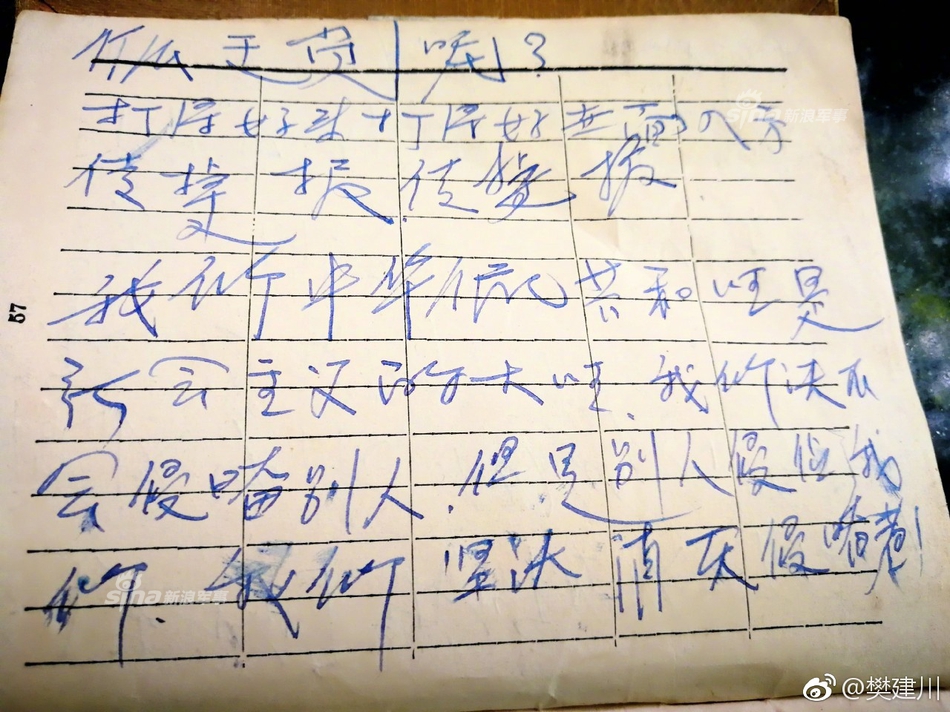 呢?
打得好来打得好 面八方
传捷报 传捷报
我们中华人民共和国是
社会主义的大国、我们决不
会侵略别人.但是别人侵略我
们.我们坚决消灭侵略者!
57
sina新浪军事
sina新浪军事
@樊建川